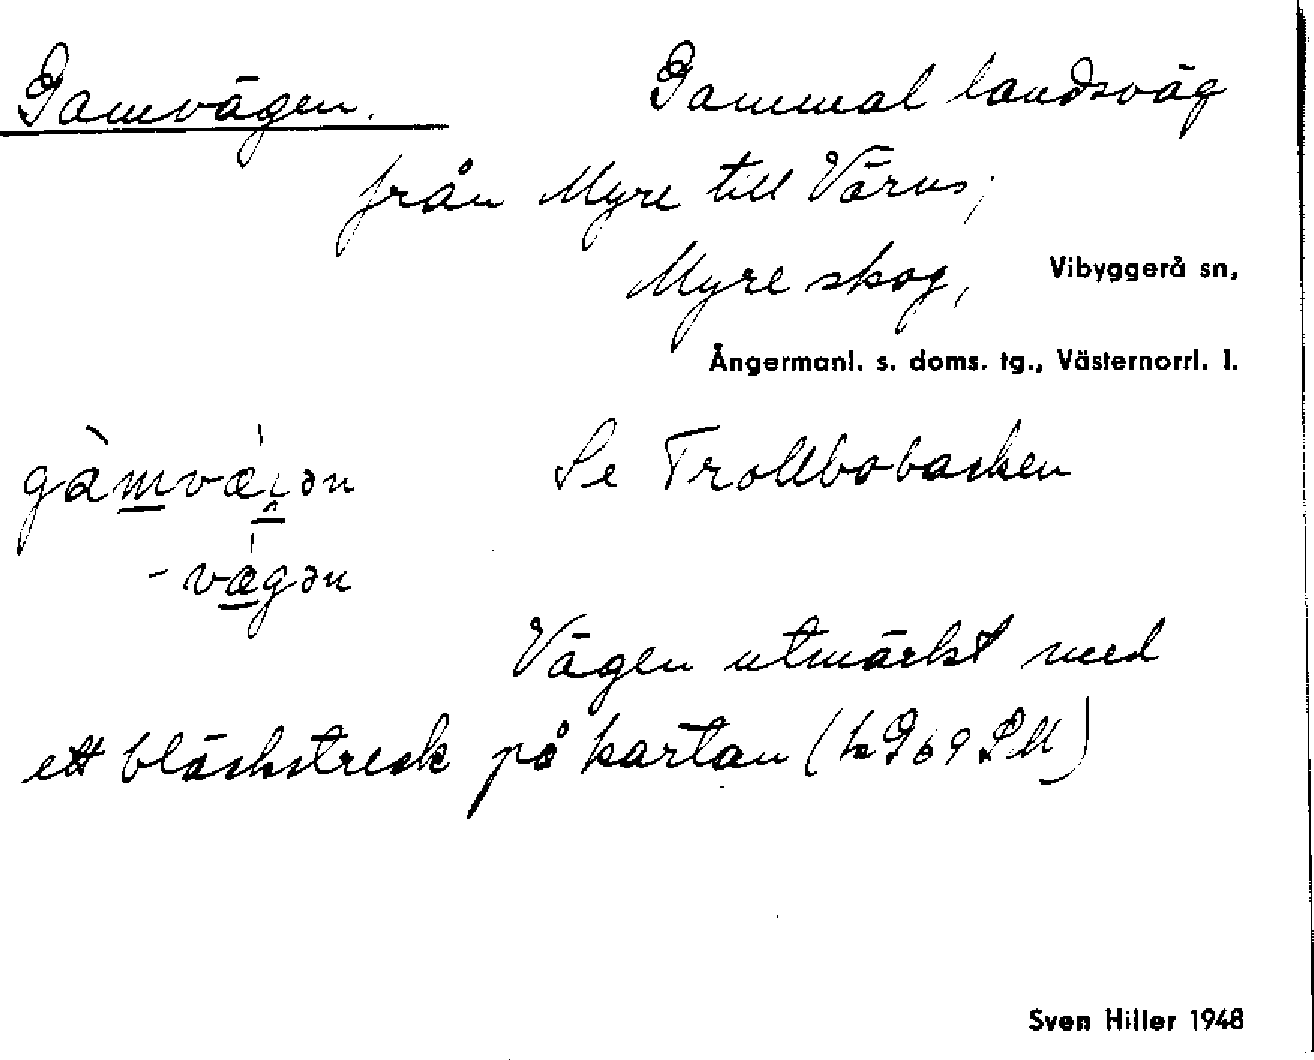 Gamvägen. Gammal landsväg
från Myre till Värns,
Myre skog, Vibyggerå sn,
Ångermanl. s. doms. tg., Västernorrl. l.
gàmvæ̍ı̯ən Se Trollbobacken
- væ̍gən
Vägen utmärkt med
ett bläckstreck på kartan
Sven Hiller 1948